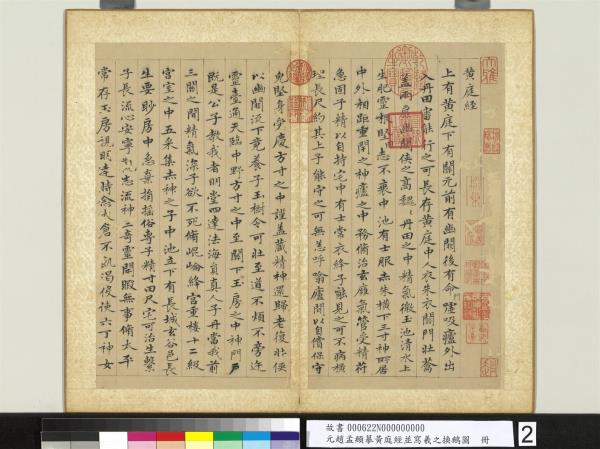 黃庭經
上有黃庭下有關元前有幽闕後有命門噓吸廬外出
入丹田審能行之可長存黃庭中人衣朱衣關門壯蘥
蓋兩扉幽闕俠之高魏魏丹田之中精氣微玉池清水上
生肥靈根堅志不衰中池有士服赤朱橫下三寸神所居
中外相距重閉之神廬之中務脩治玄廱氣管受精符
急固子精以自持宅中有士常衣絳子能見之可不病橫
理長尺約其上子能守之可無恙呼噏廬閒以自償保守
完堅身受慶方寸之中謹蓋藏精神還歸老復壯俠
以幽闕流下竟養子玉樹令可壯至道不煩不旁迕
靈臺通天臨中野方寸之中至關下玉房之中神門戶
既是公子教我者明堂四達法海員真人子丹當我前
三關之間精氣深子欲不死脩崐崘絳宮重樓十二級
宮室之中五采集赤神之子中池立下有長城玄谷邑長
生要眇房中急棄捐搖俗專子精寸田尺宅可治生繫
子長流心安寧觀志流神三奇靈閑暇無事脩太平
常存玉房視明達時念大倉不飢渴役使六丁神女
故書 000622N000000000
元趙孟頫摹黃庭經並寫羲之換鵝圖 冊
2